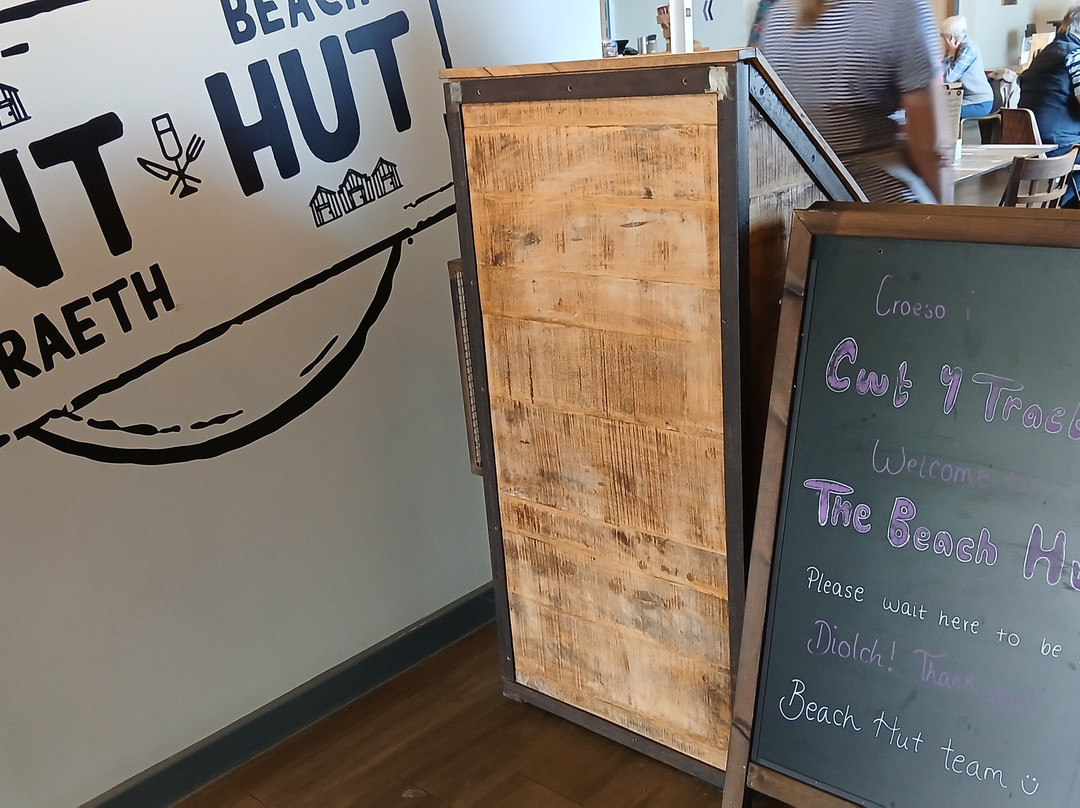 BEACH
HUT
NT
RAETH
Croeso i
Cwt y Traet
Welcome
The Beach Hu
Please wait here to be
Diolch! Thank you
Beach Hut team